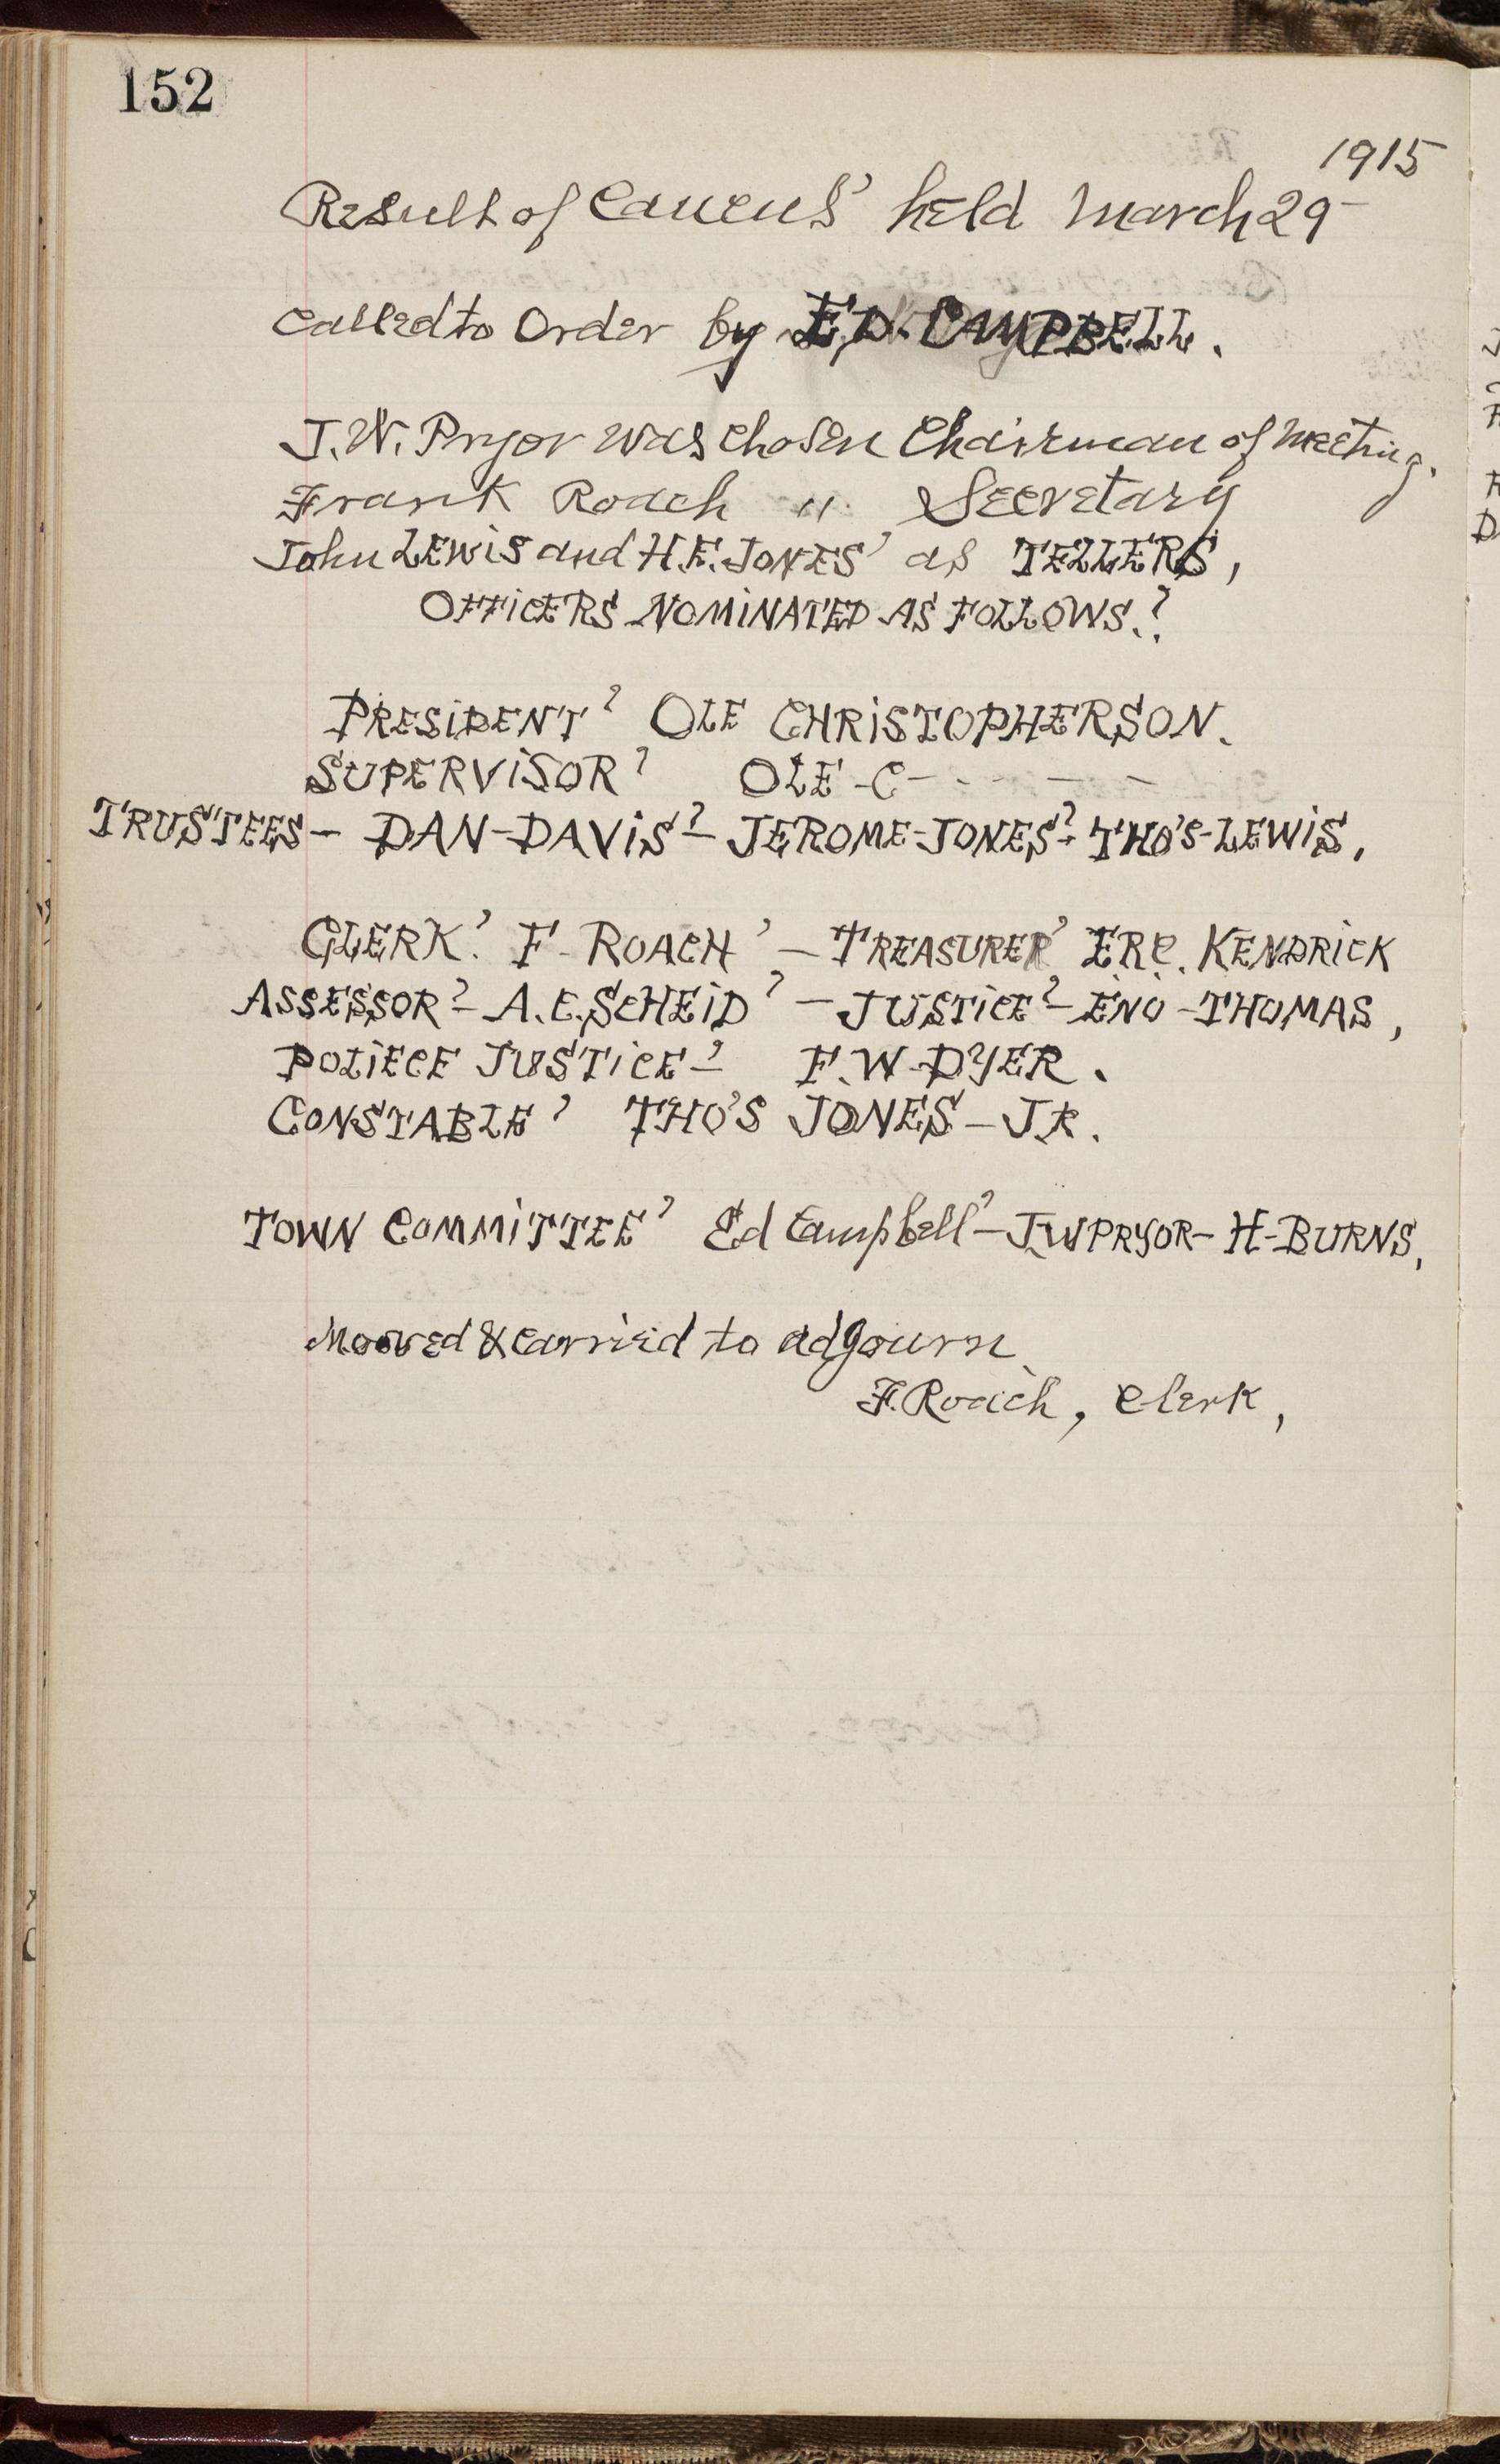 152
1915
Result of Caucus' held March 29-
Called to Order by ED. CAMPBELL.
J.W. Pryor was chosen Chairman of Meeting.
Frank Roach " Secretary
John LEWIS and H.E. JONES' as TELLERS,
OFFICERS NOMINATED AS FOLLOWS.?
PRESIDENT? OLE CHRISTOPHERSON.
SUPERVISOR? OLE-C- - - - — —
TRUSTEES- DAN-DAVIS?- JEROME-JONES?- THO'S-LEWIS,
CLERK? F-ROACH' - TREASURER' ERC. KENDRICK
ASSESSOR?- A.C. SCHEID? - JUSTICE?- ENO-THOMAS,
POLIECE JUSTICE-? F.W-DYER.
CONSTABLE? THO'S JONES-JR.
TOWN COMMITTEE' Ed Campbell'- J.W PRYOR- H-BURNS,
Mooved & carried to adgourn
F. Roach, Clerk,